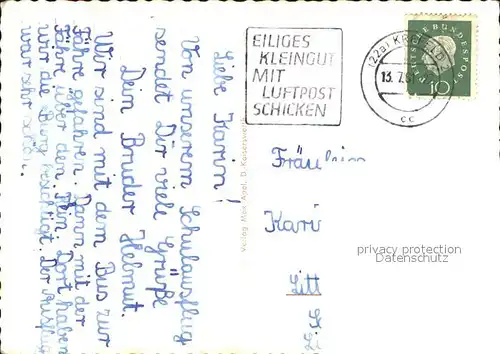 Liebe Karin!
Von unserem Schulausflug
sendet Dir viel Grüße
Dein Bruder Helmut.
Wir sind mit dem Bus zur
Fähre gefahren. Dann mit der
Fähre über den Rhein. Dort haben
wir die Burg besichtigt. Der Ausflug
war sehr schön.
Verlag Max Apel, D. Kaisersw
EILIGES
KLEINGUT
MIT
LUFTPOST
SCHICKEN
(22a) KREFELD
13.7.6
cc
DEUTSCHE BUNDESPOST
10
Fräulein
Kari
Litt
privacy protection
Datenschutz